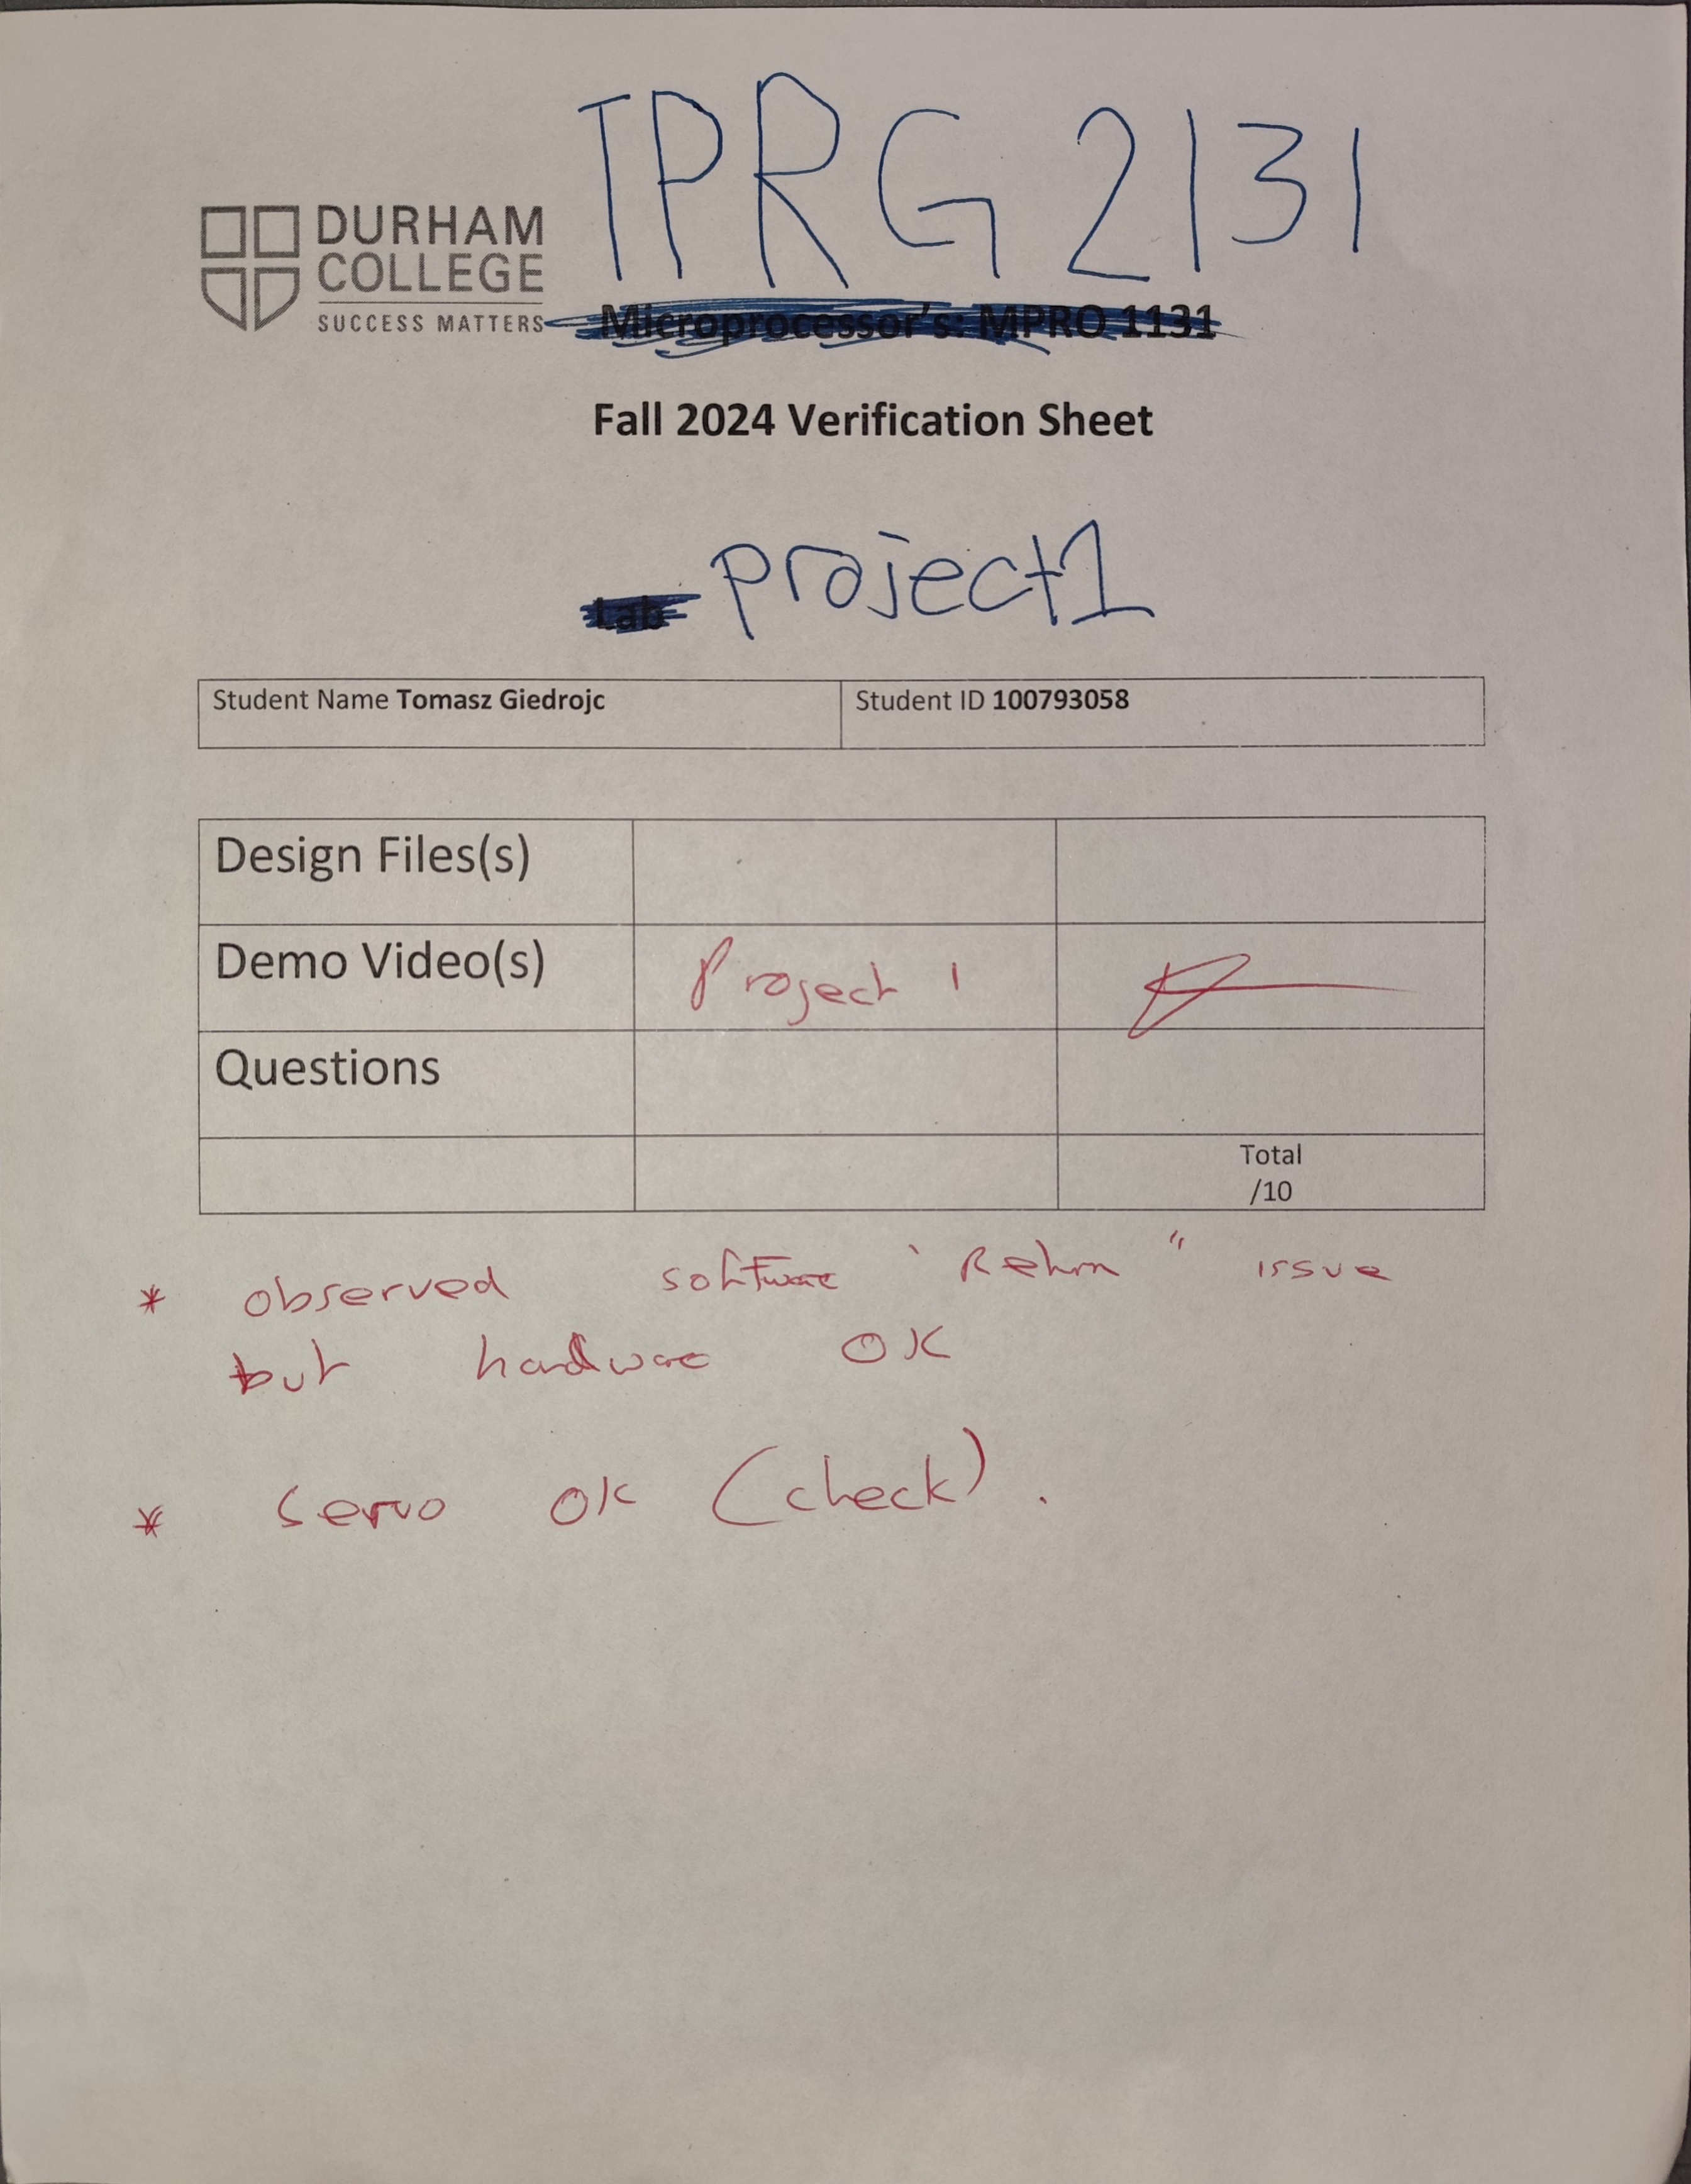 TPRG 2131
DURHAM
COLLEGE
SUCCESS MATTERS
Microprocessor's: MPRO 1131
Fall 2024 Verification Sheet
Lab project1
Student Name Tomasz Giedrojc Student ID 100793058
Design Files(s)
Demo Video(s) Project 1
Questions
Total
/10
* observed software ‘Return” issue
but hardware OK
* Servo OK (check).